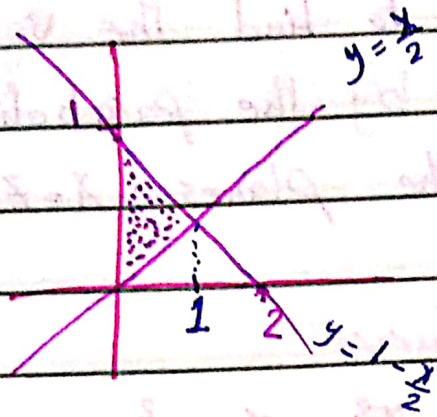 y = x/2
1
D
1
2
y = 1 - x/2